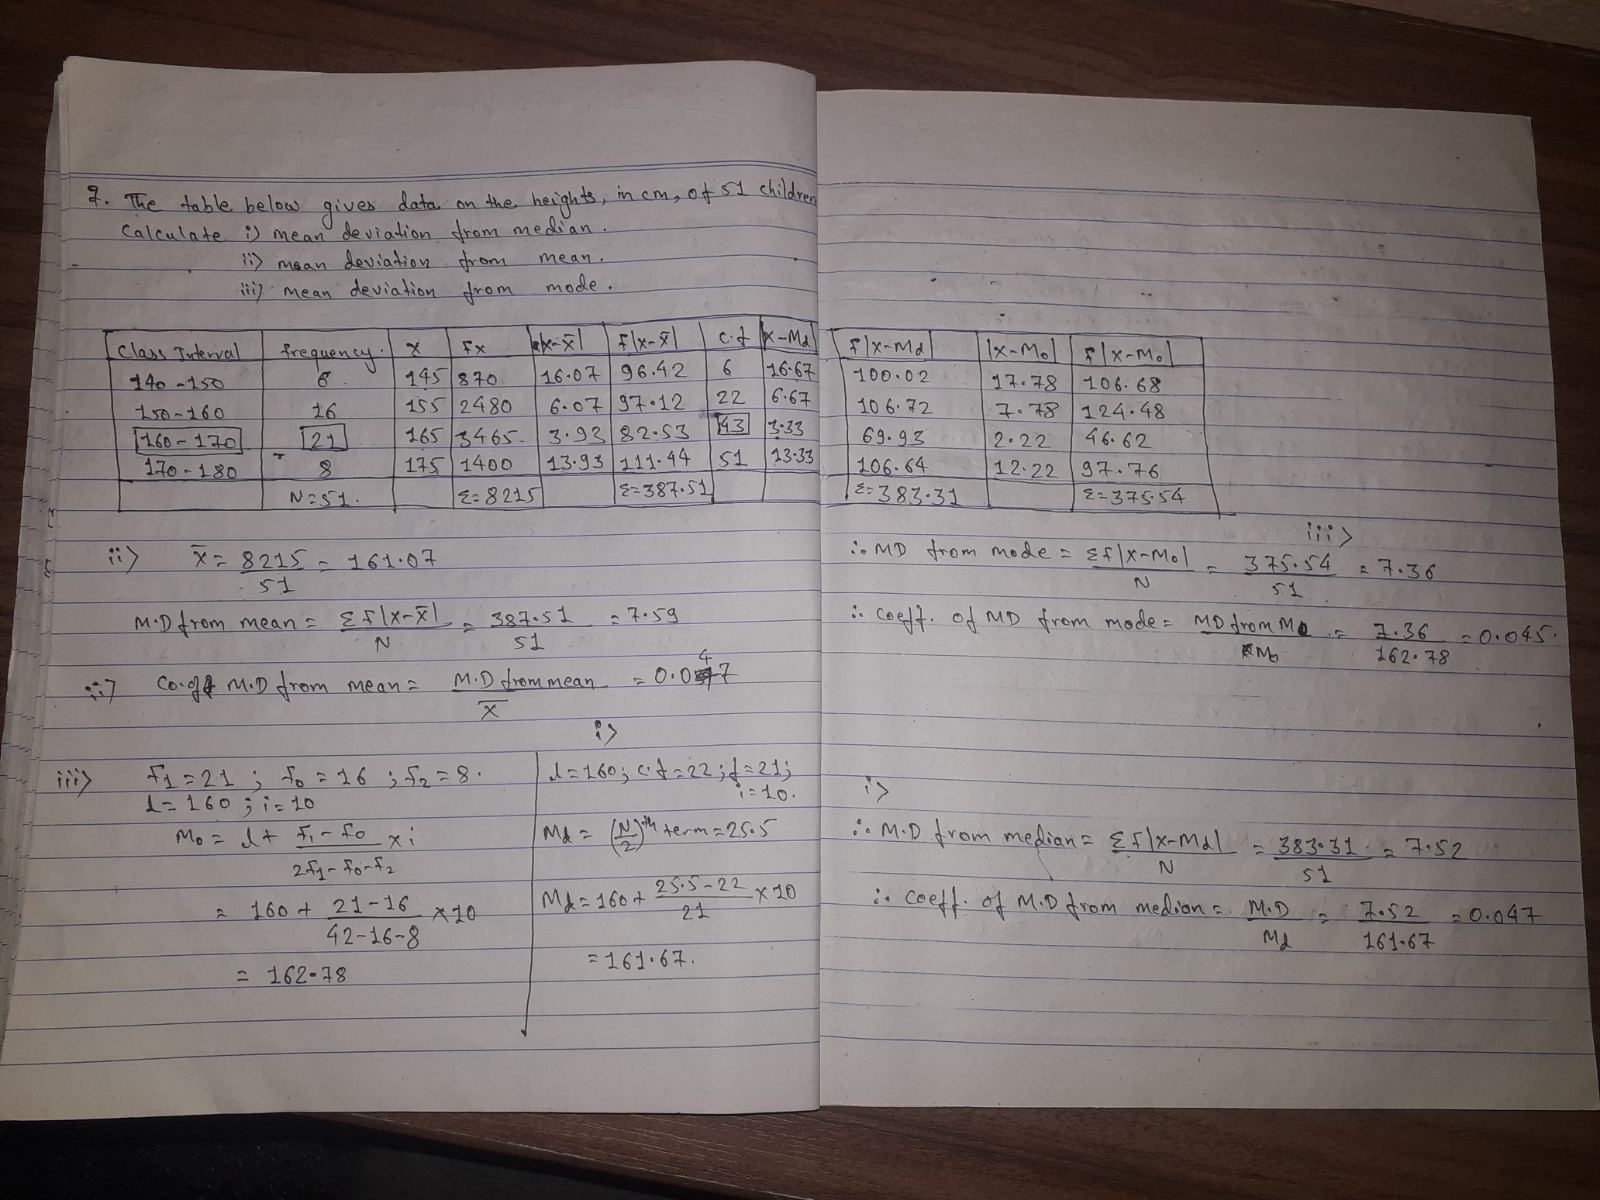 7. The table below gives data on the heights, in cm, of 51 children
Calculate i) mean deviation from median.
ii) mean deviation from mean.
iii) mean deviation from mode.
Class Interval frequency. X FX |X-X̄| F|X-X̄| C.f |X-Md| F|X-Md| |X-Mo| F|X-Mo|
140-150 6 145 870 16.07 96.42 6 16.67 100.02 17.78 106.68
150-160 16 155 2480 6.07 97.12 22 6.67 106.72 7.78 124.48
160-170 21 165 3465 3.93 82.53 43 3.33 69.93 2.22 46.62
170-180 8 175 1400 13.93 111.44 51 13.33 106.64 12.22 97.76
N=51. Σ=8215 Σ=387.51 Σ=383.31 Σ=375.54
ii) X̄ = 8215/51 = 161.07
M.D from mean = ΣF|X-X̄|/N = 387.51/51 = 7.59
ii) Co.of M.D from mean = M.D from mean/X̄ = 0.047
iii) F1=21 ; F0=16 ; F2=8.
l=160 ; i=10
Mo = l+ F1-F0/2F1-F0-F2 x i
= 160 + 21-16/42-16-8 x10
= 162.78
i)
l=160; c.f=22; f=21;
i=10.
Md = (N/2)th term = 25.5
Md = 160+ 25.5-22/21 x10
= 161.67.
iii)
∴ MD from mode = ΣF|X-Mo|/N = 375.54/51 = 7.36
∴ Coeff. of MD from mode = MD from Mo/Mo = 7.36/162.78 = 0.045.
i)
∴ M.D from median = ΣF|X-Md|/N = 383.31/51 = 7.52
∴ Coeff. of M.D from median = M.D/Md = 7.52/161.67 = 0.047